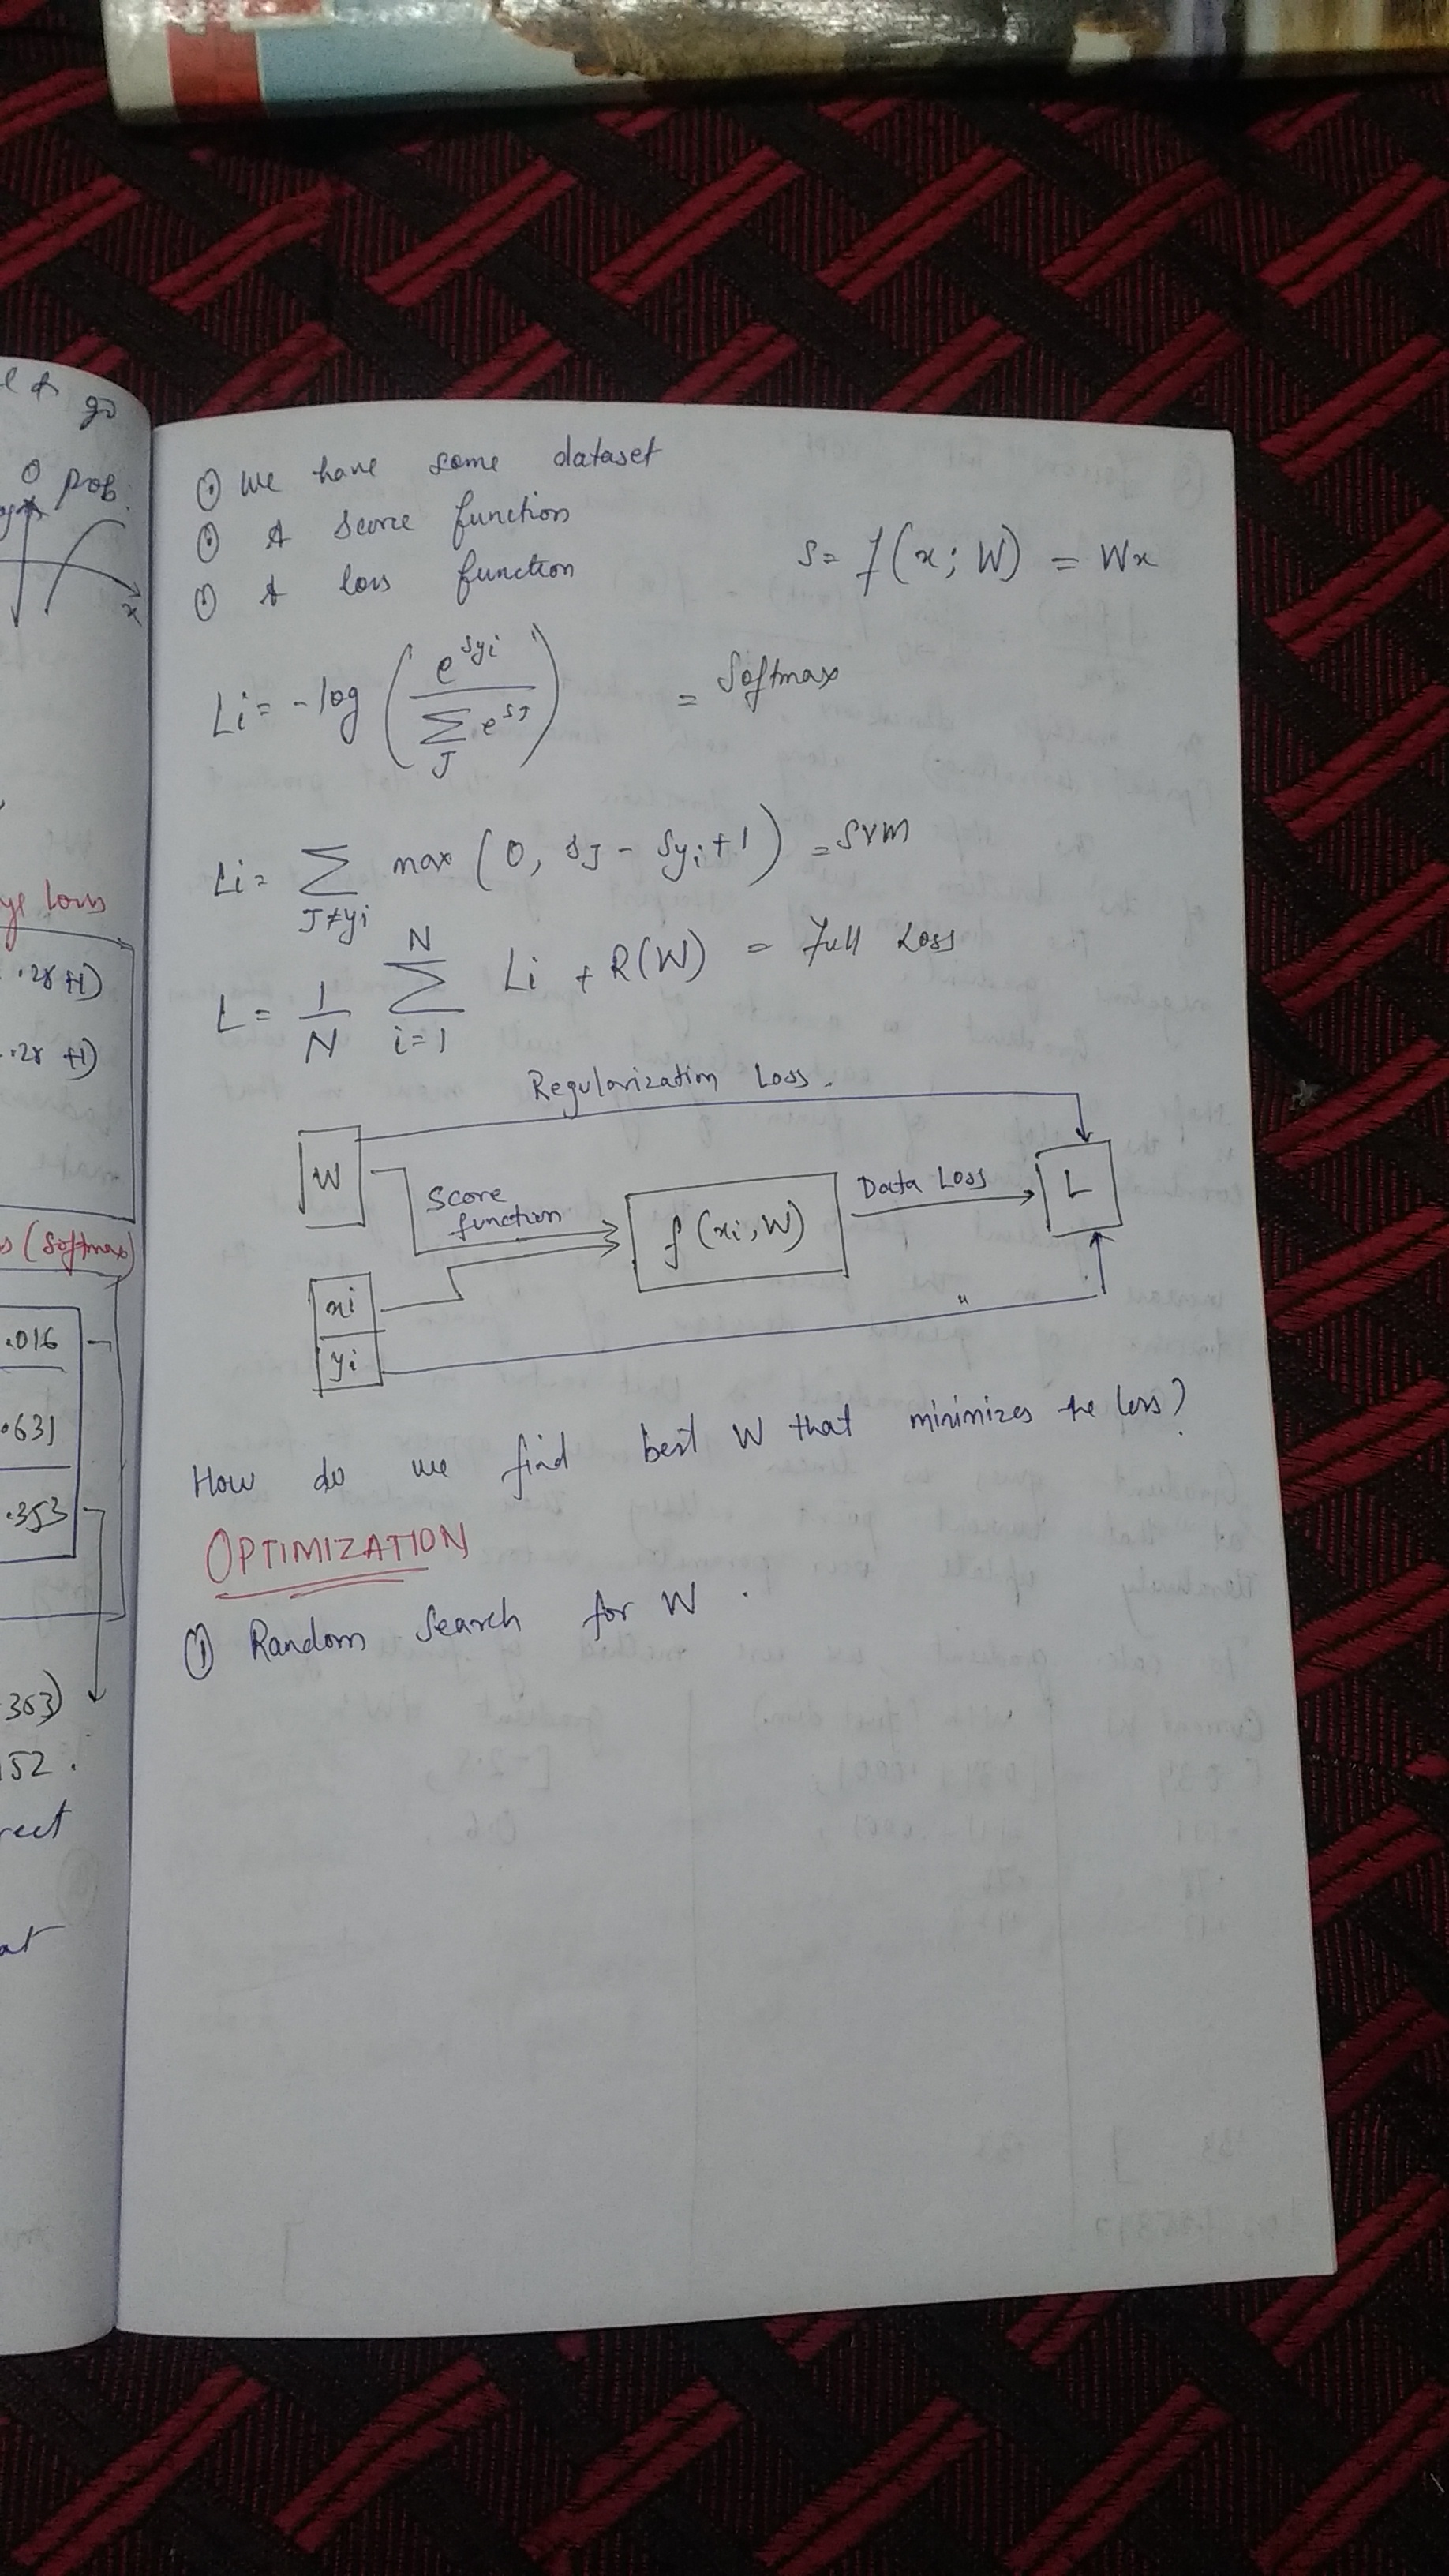 l & go
0 prob.
x
ge loss
.28 +1)
.28 +1)
s (Softmax)
.016
.631
.353
353)
152.
rect
at
① We have some dataset
① A score function
① A loss function
s = f(x; W) = Wx
Li = -log ( e^syi / ∑J e^sJ ) = Softmax
Li = ∑J≠yi max (0, sJ - syi + 1) = SVM
L = 1/N ∑i=1^N Li + R(W) = Full Loss
Regularization Loss.
W
Score function
f(xi, W)
Data Loss
L
xi
yi
"
How do we find best W that minimizes the loss?
OPTIMIZATION
① Random Search for W.